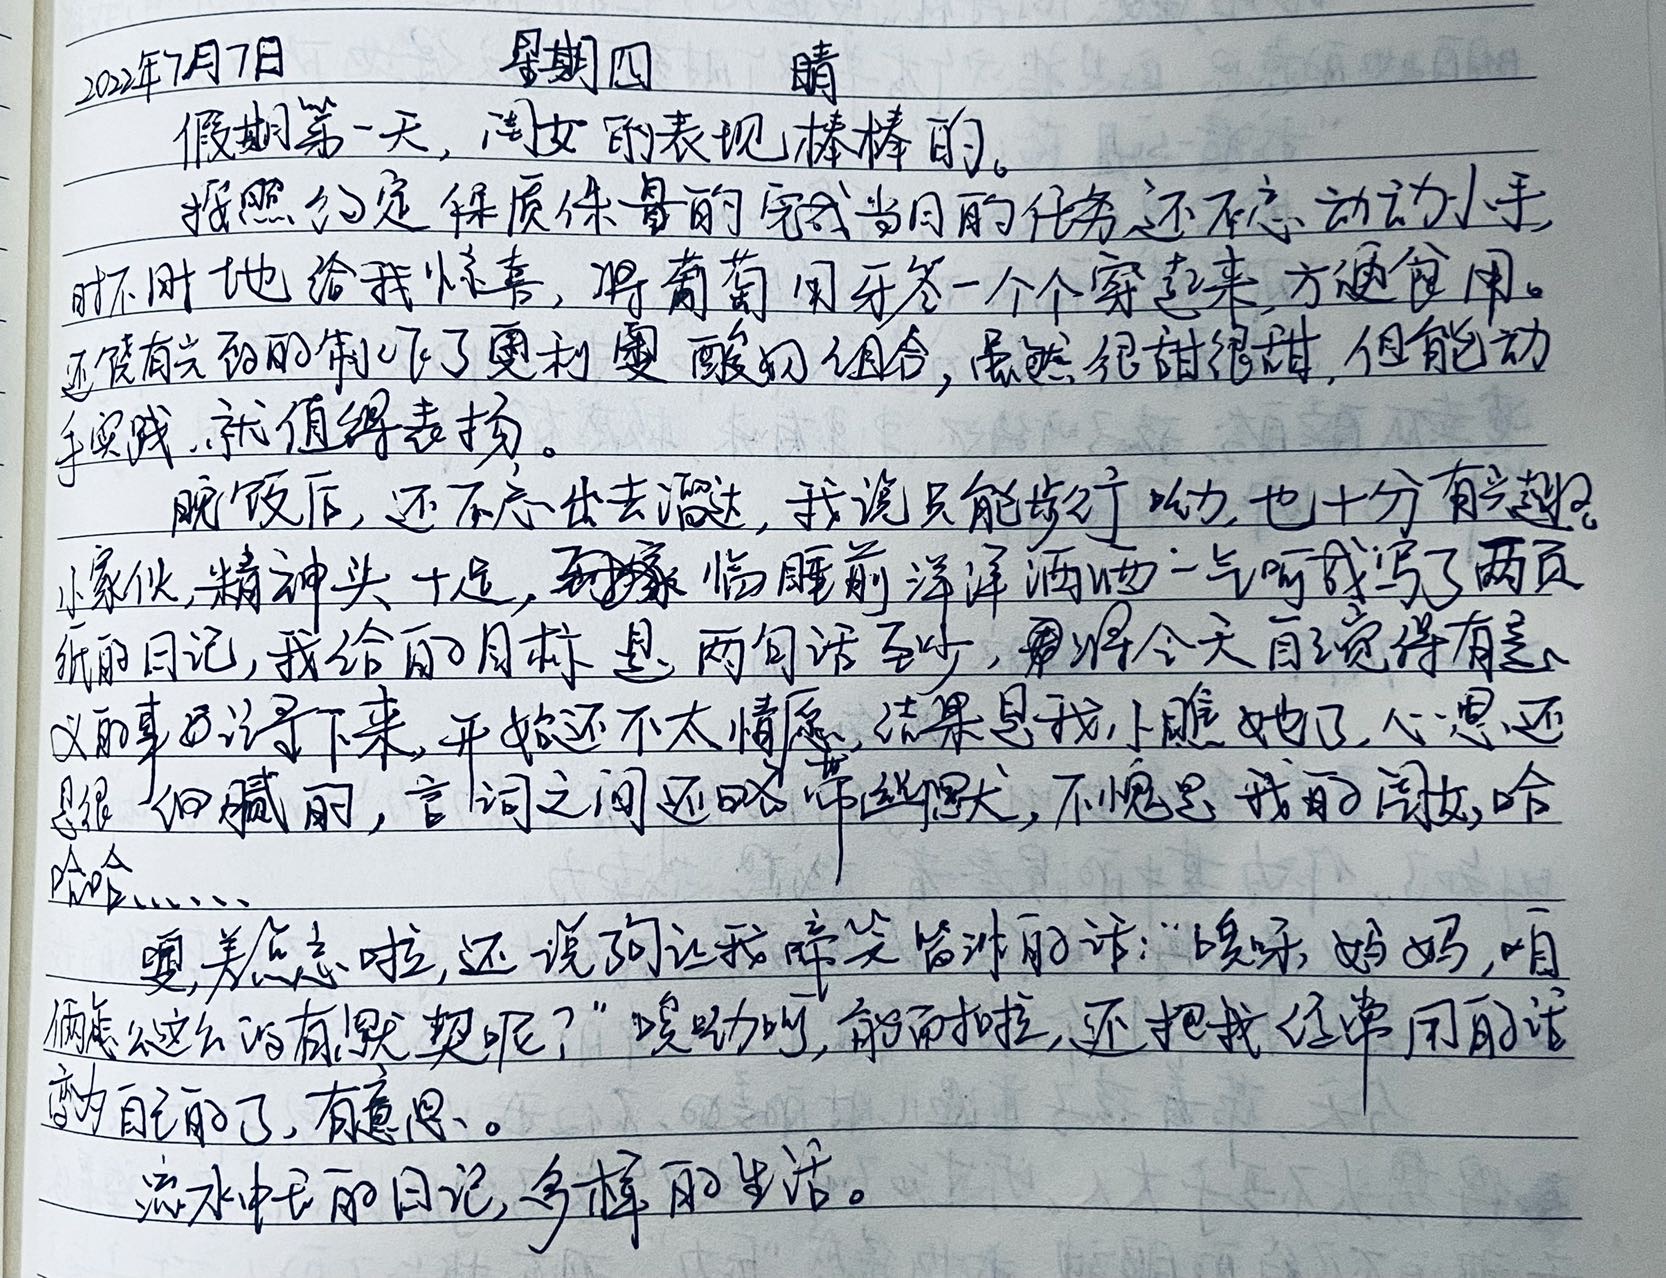 2022年7月7日 星期四 晴
假期第一天,闺女的表现棒棒的。
按照约定保质保量的完成当日的任务还不忘动动小手,
时不时地给我惊喜,将葡萄用牙签一个个穿起来,方便食用。
还饶有兴致的制作了奥利奥酸奶组合,虽然很甜很甜,但能动
手实践,就值得表扬。
晚饭后,还不忘出去溜达,我说只能步行呦,也十分有兴趣。
小家伙,精神头十足,临睡前洋洋洒洒一气呵成写了两页
纸的日记,我给的目标是两句话至少,将今天自己觉得有意
义的事记录下来,开始还不太情愿,结果是我小瞧她了,心思还
是很细腻的,言词之间还略带丝幽默,不愧是我的闺女,哈
哈哈......
要,差点忘啦,还说了句让我啼笑皆非的话:“哎呀,妈妈,咱
俩怎么这么的有默契呢?”哎呦呵,能耐啦,还把我经常用的话
变为自己的了,有意思。
流水中长的日记,多样的生活。